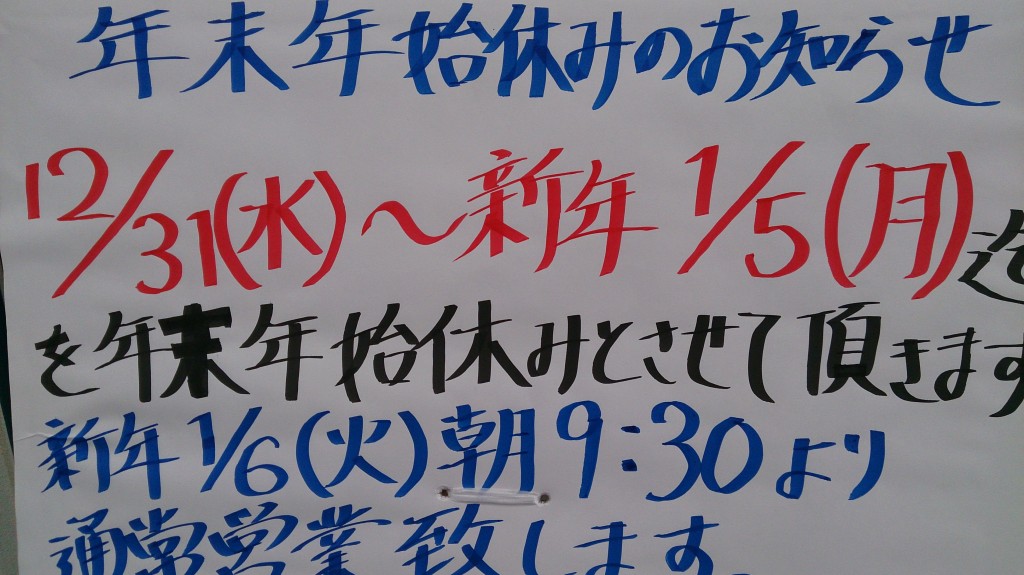 年末年始休みのお知らせ
12/31(水)～新年1/5(月)迄
を年末年始休みとさせて頂きます
新年1/6(火)朝9:30より
通常営業致します。